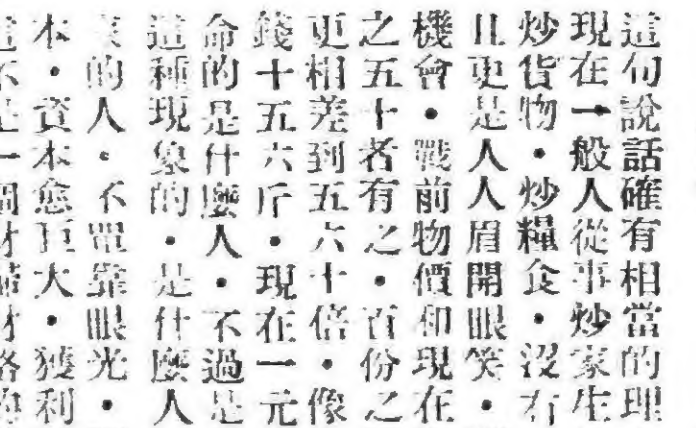 這句說話確有相當的理
現在一般人從事炒家生
炒貨物・炒糧食・沒有
且更是人人眉開眼笑・
機會・戰前物價和現在
之五十者有之・百份之
更相差到五六十倍・像
錢十五六斤・現在一元
命的是什麼人・不過是
這種現象的・是什麼人
的人・不單靠眼光・
本・資本愈巨大・獲利
不是一個財